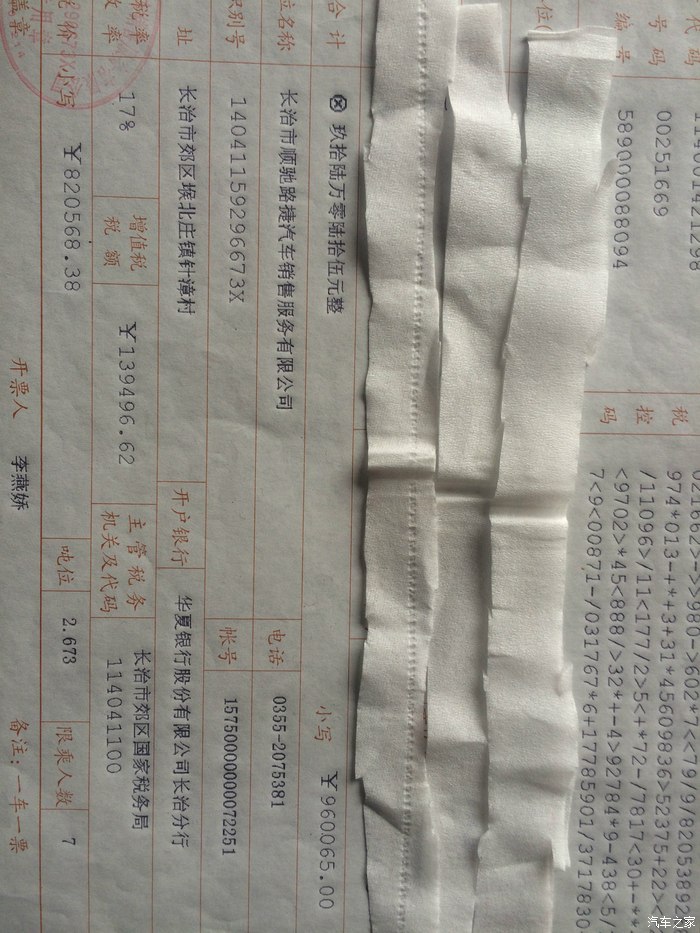 号码 00251669
编号 589000088094
税控码
974*013-+*+3+31*45609836>52375+22<
/11096>/11<177/2>5<+*72-/7817<30+-**
<9702>*45<888/>32*+-4>92784*9-438<5/
7<9<00871-/031767*6+17785901/3717830
合计 ⊗ 玖拾陆万零陆拾伍元整 小写 ¥960065.00
位名称 长治市顺驰路捷汽车销售服务有限公司 电话 0355-2075381
识别号 14041159296673X 帐号 15750000000072251
址 长治市郊区堠北庄镇针漳村 开户银行 华夏银行股份有限公司长治分行
税率 17% 增值税税额 ¥139496.62 主管税务机关及代码 长治市郊区国家税务局 114041100
小写 ¥820568.38 吨位 2.673 限乘人数 7
盖章 开票人 李燕娇 备注：一车一票
汽车之家